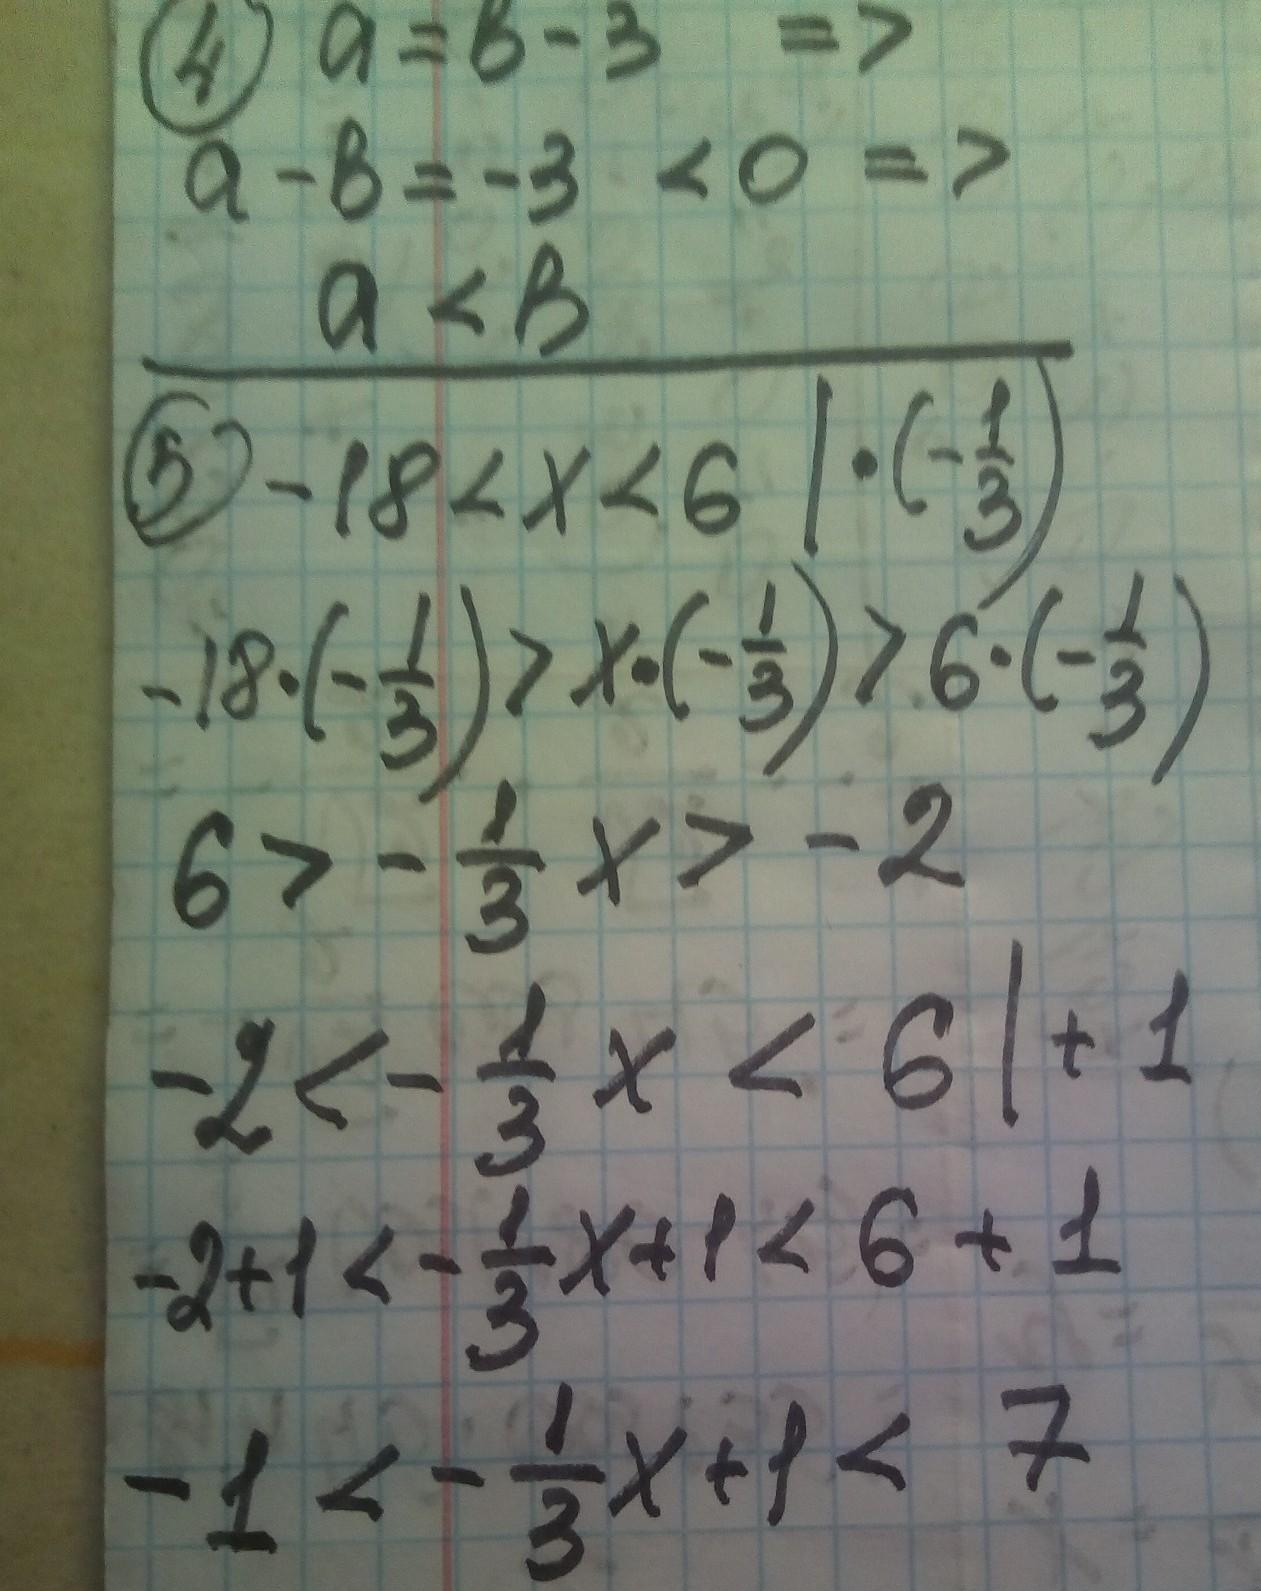 ④ a = b - 3 =>
a - b = -3 < 0 =>
a < b
⑤ -18 < x < 6 | · (-1/3)
-18 · (-1/3) > x · (-1/3) > 6 · (-1/3)
6 > -1/3 x > -2
-2 < -1/3 x < 6 | + 1
-2 + 1 < -1/3 x + 1 < 6 + 1
-1 < -1/3 x + 1 < 7